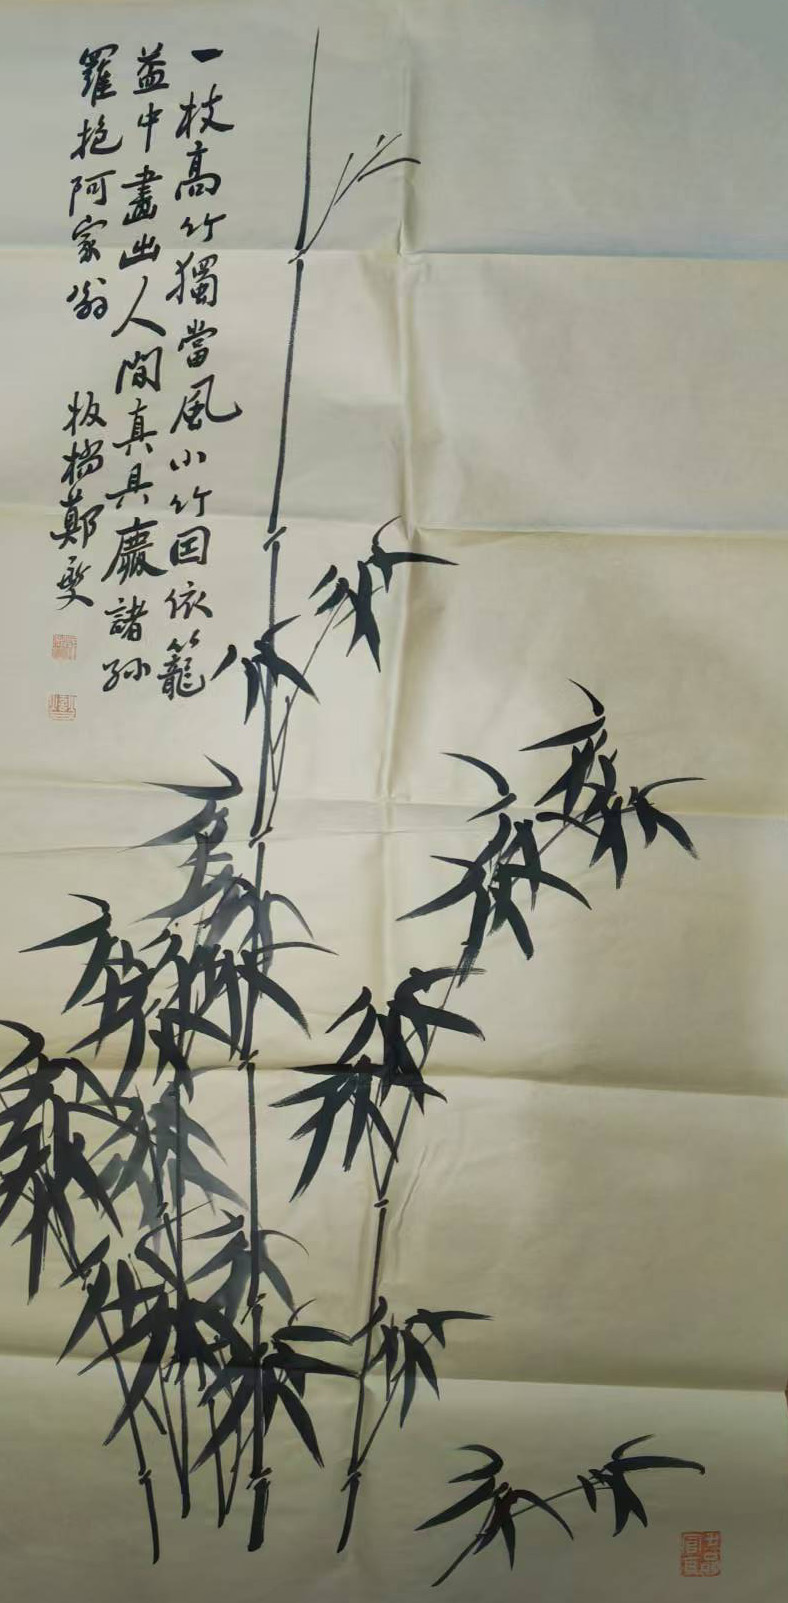 一枝高竹獨當風小竹因依籠
盖中畫出人間真具慶諸孫
羅抱阿家翁
板橋鄭燮